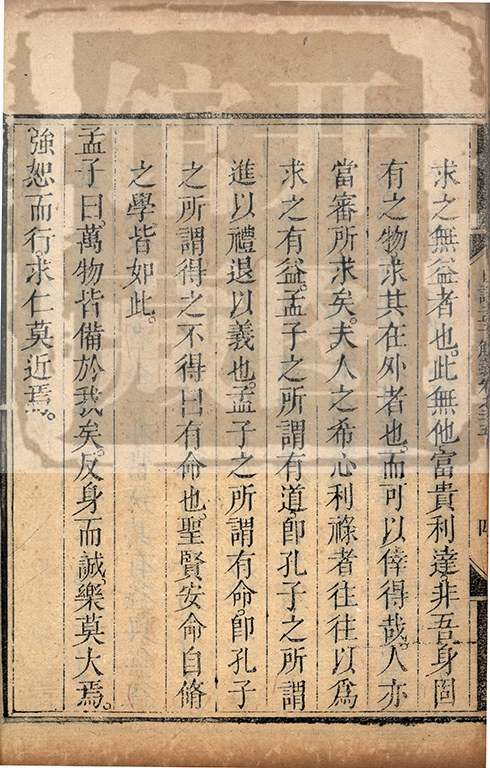 求之無益者也。此無他富貴利達非吾身固
有之物求其在外者也。而可以倖得哉。人亦
當審所求矣。夫人之希心利祿者往往以爲
求之有益。孟子之所謂有道。卽孔子之所謂
進以禮退以義也。孟子之所謂有命。卽孔子
之所謂得之不得曰有命也。聖賢安命自脩
之學皆如此。
孟子曰。萬物皆備於我矣。反身而誠。樂莫大焉。
強恕而行。求仁莫近焉。